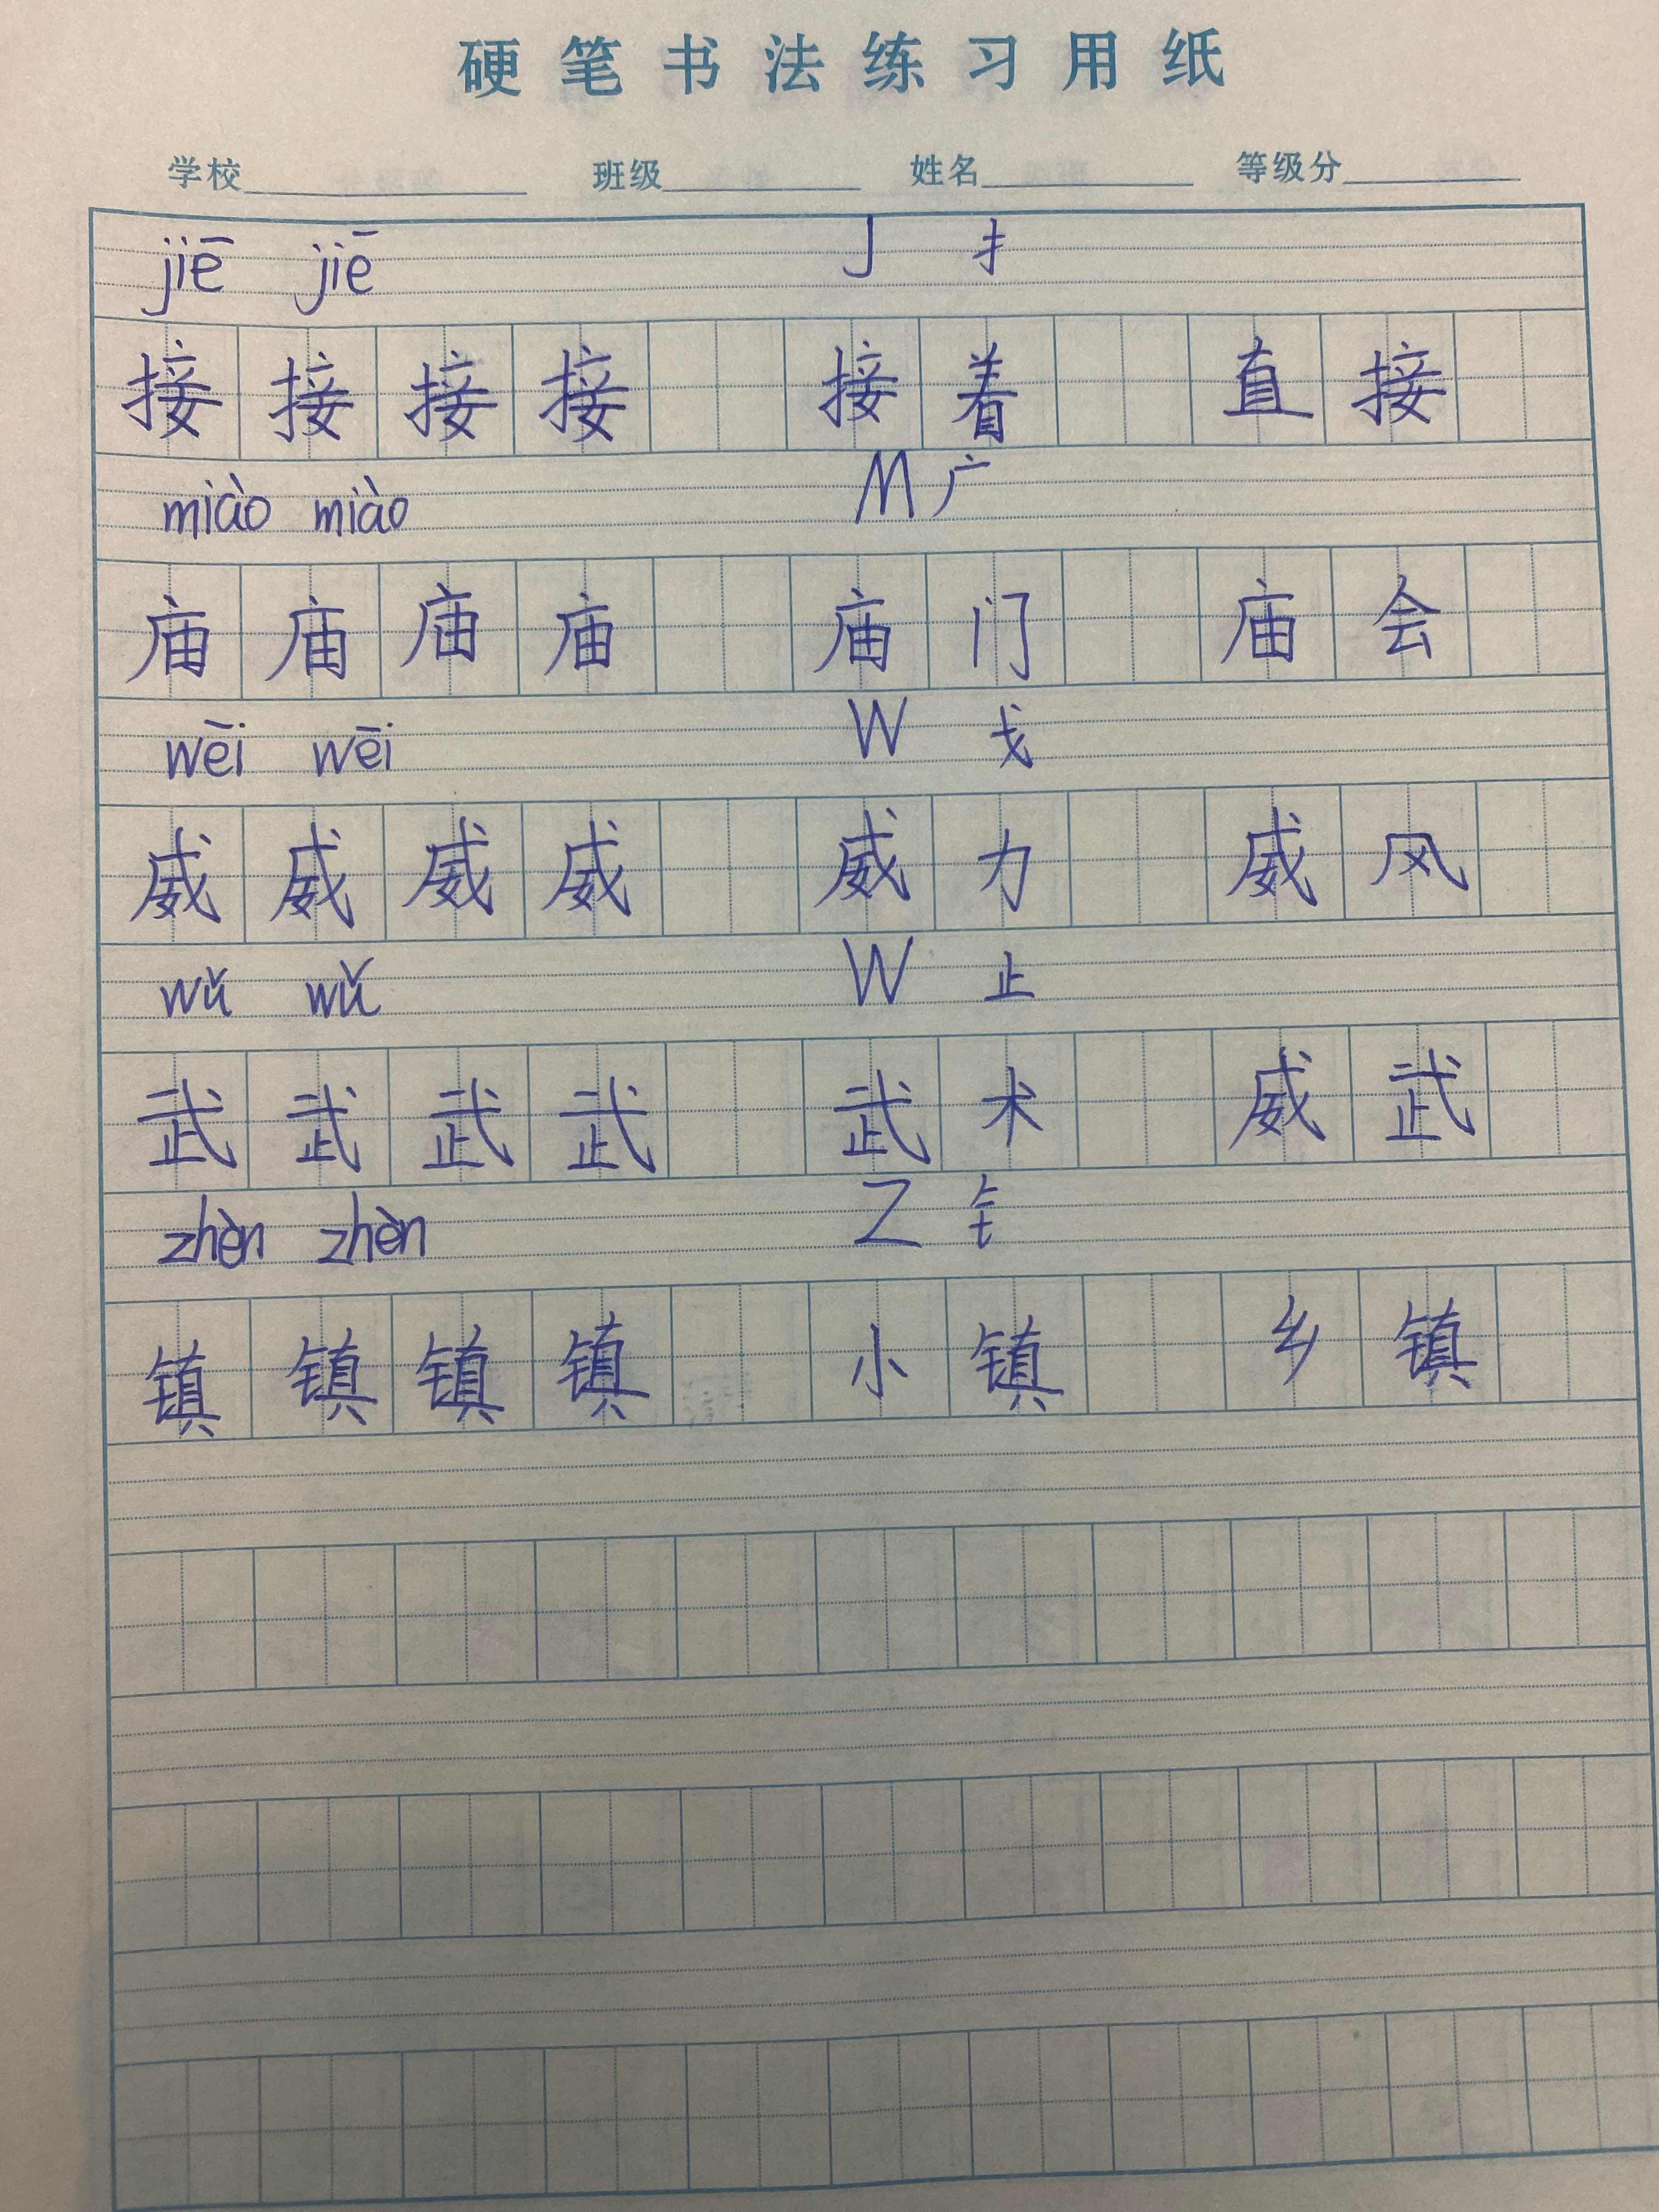 硬笔书法练习用纸
学校 班级 姓名 等级分
jiē jiē J 扌
接接接接 接着 直接
miào miào M 广
庙庙庙庙 庙门 庙会
wēi wēi W 戈
威威威威 威力 威风
wǔ wǔ W 止
武武武武 武术 威武
zhèn zhèn Z 钅
镇镇镇镇 小镇 乡镇